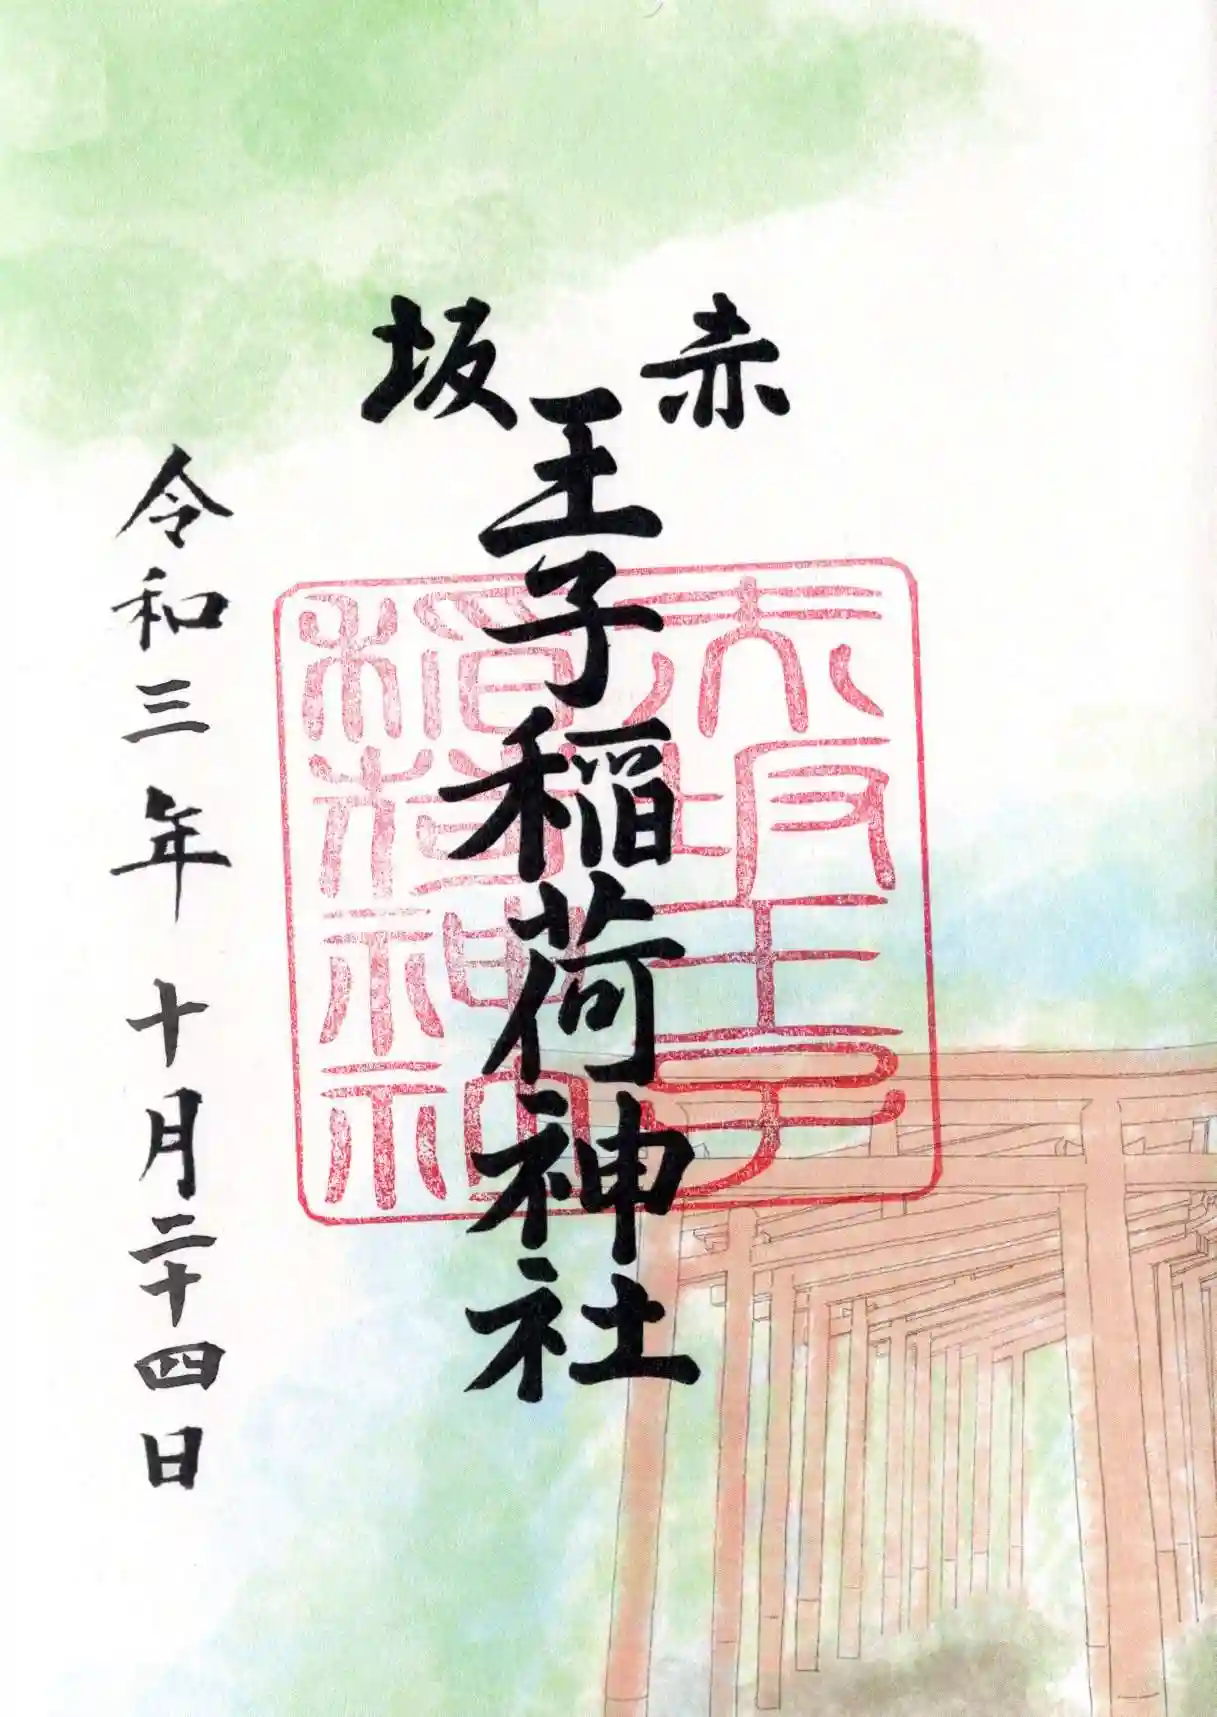 赤坂
王子稲荷神社
赤坂王子
稲荷神社
令和三年 十月二十四日